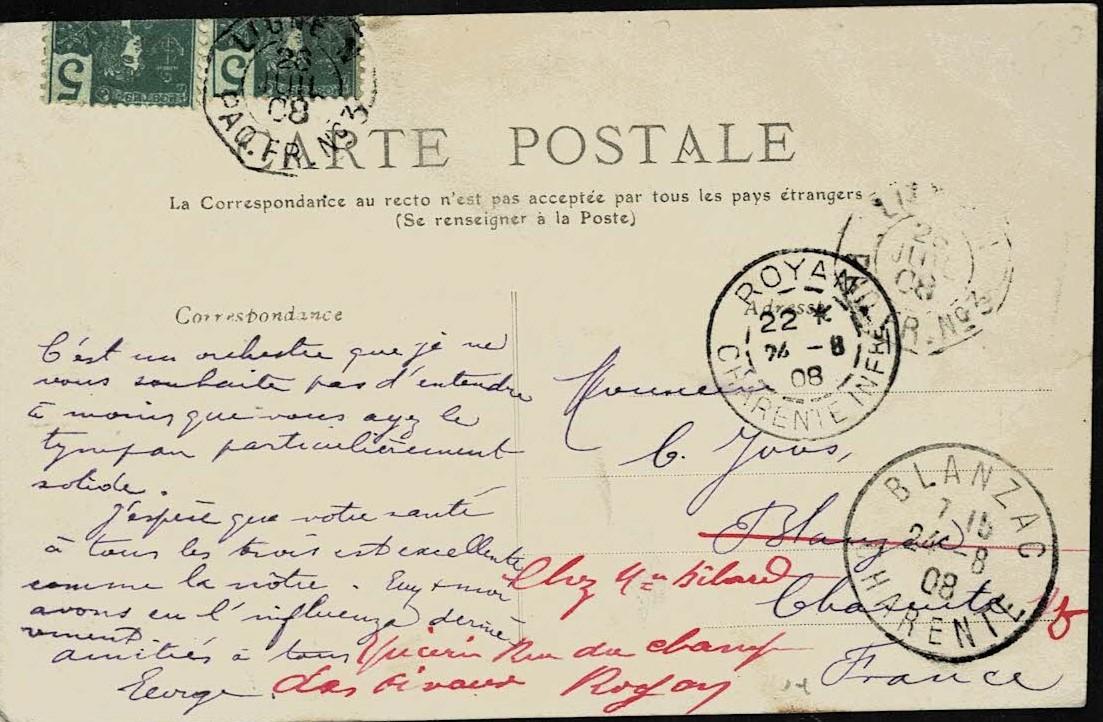 5 5
LIGNE N
26
JUIL
08
PAQ. FR. No 3
CARTE POSTALE
La Correspondance au recto n'est pas acceptée par tous les pays étrangers
(Se renseigner à la Poste)
26
JUIL
08
FR. No 3
ROYAN
22 *
24 - 8
08
CHARENTE INFRE
Correspondance
Adresse
C'est un orchestre que je ne
vous souhaite pas d'entendre
à moins que vous ayez le
tympan particulièrement
solide.
J'espère que votre santé
à tous les trois est excellente
comme la nôtre. Euy + moi
avons eu l'influenza derniè
rement
amitiés à tous
George.
Monsieur
C. Jous,
Blanzac
Charente
France
BLANZAC
7 15
24 - 8
08
CHARENTE
Chez Mme
Epicerie Rue du champ
des oiseaux Royan